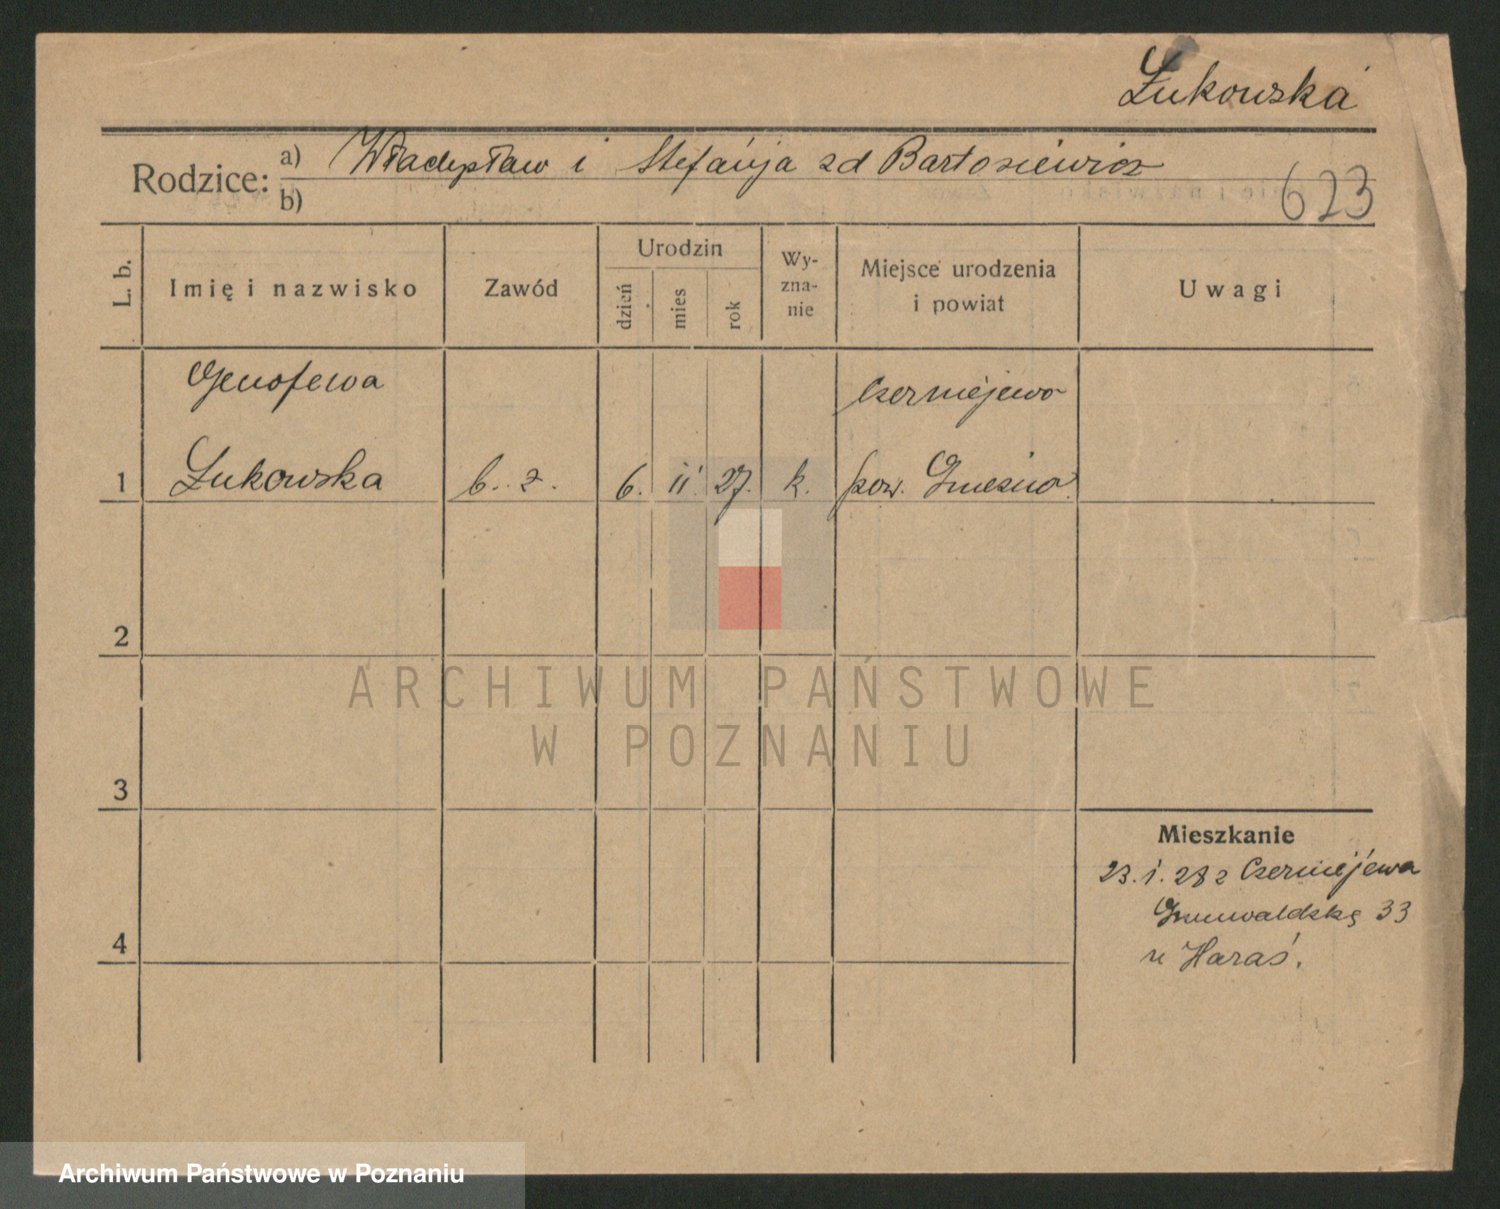 Łukowska
Rodzice: a) Władysław i Stefanja zd Bartosiewicz
b)
623
L. b.
Imię i nazwisko
Zawód
Urodzin
dzień
mies
rok
Wy-
zna-
nie
Miejsce urodzenia
i powiat
Uwagi
Genofewa
Czerniejewo
1 Łukowska b. z. 6. ii. 27. k. pow. Gniezno.
2
ARCHIWUM PAŃSTWOWE
W POZNANIU
3
Mieszkanie
23. i. 28 z Czerniejewa
Grunwaldzka 33
4
u Haraś.
Archiwum Państwowe w Poznaniu